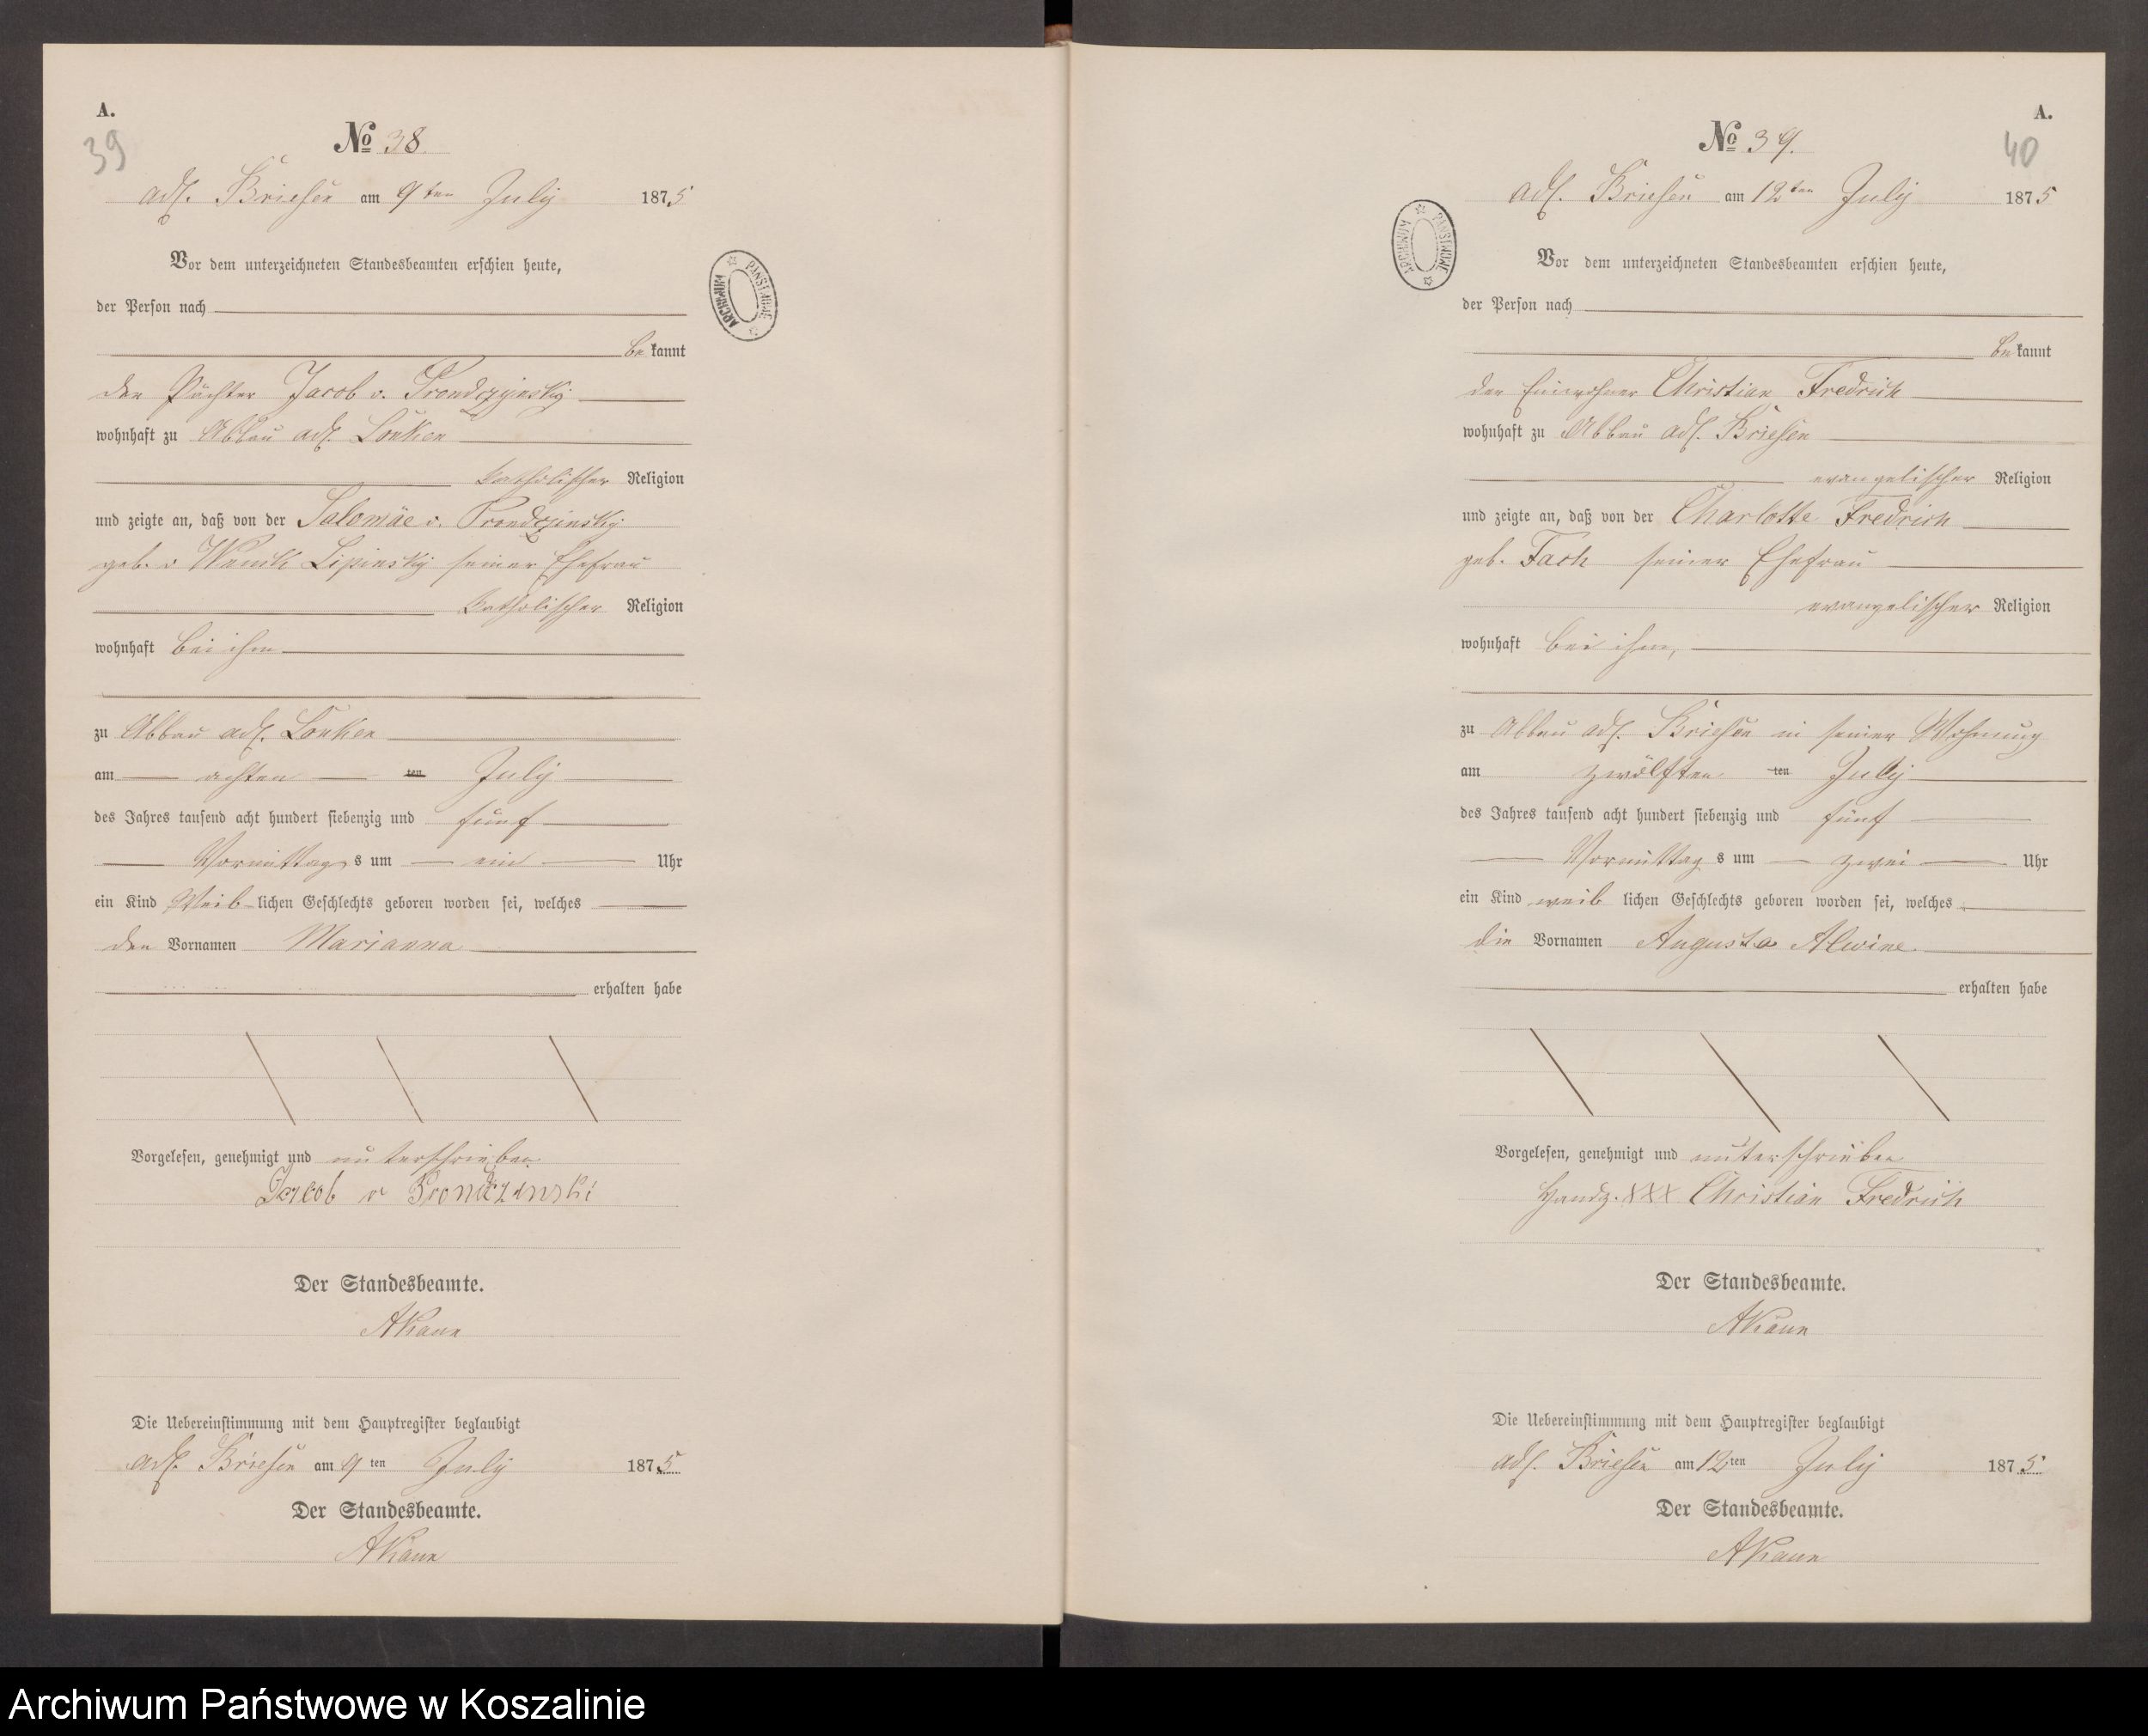 A.
39
№ 38.
adl. Briesen am 9ten July 1875
Vor dem unterzeichneten Standesbeamten erschien heute,
der Person nach
bekannt
der Pächter Jacob v. Prondzyinsky
wohnhaft zu Abbau adl. Lonken
katholischer Religion
und zeigte an, daß von der Salomäe v. Prondzinsky
geb. v Wenck Lipinsky seiner Ehefrau
katholischer Religion
wohnhaft bei ihm
zu Abbau adl. Lonken
am achten ten July
des Jahres tausend acht hundert siebenzig und fünf
Vormittags um ein Uhr
ein Kind Weiblichen Geschlechts geboren worden sei, welches
den Vornamen Marianna
erhalten habe
Vorgelesen, genehmigt und unterschrieben
Jacob v Prondzinski
Der Standesbeamte.
Die Uebereinstimmung mit dem Hauptregister beglaubigt
adl. Briesen am 9ten July 1875
Der Standesbeamte.
ARCHIWUM PAŃSTWOWE
A.
40
№ 39.
adl. Briesen am 12ten July 1875
Vor dem unterzeichneten Standesbeamten erschien heute,
der Person nach
bekannt
der Einwohner Christian Fredrich
wohnhaft zu Abbau adl. Briesen
evangelischer Religion
und zeigte an, daß von der Charlotte Fredrich
geb. Tach seiner Ehefrau
evangelischer Religion
wohnhaft bei ihm,
zu Abbau adl. Briesen in seiner Wohnung
am zwölften ten July
des Jahres tausend acht hundert siebenzig und fünf
Vormittags um zwei Uhr
ein Kind weiblichen Geschlechts geboren worden sei, welches
die Vornamen Augusta Alwine.
erhalten habe
Vorgelesen, genehmigt und unterschrieben
Handz. XXX Christian Fredrich
Der Standesbeamte.
Die Uebereinstimmung mit dem Hauptregister beglaubigt
adl. Briesen am 12ten July 1875
Der Standesbeamte.
ARCHIWUM PAŃSTWOWE
Archiwum Państwowe w Koszalinie